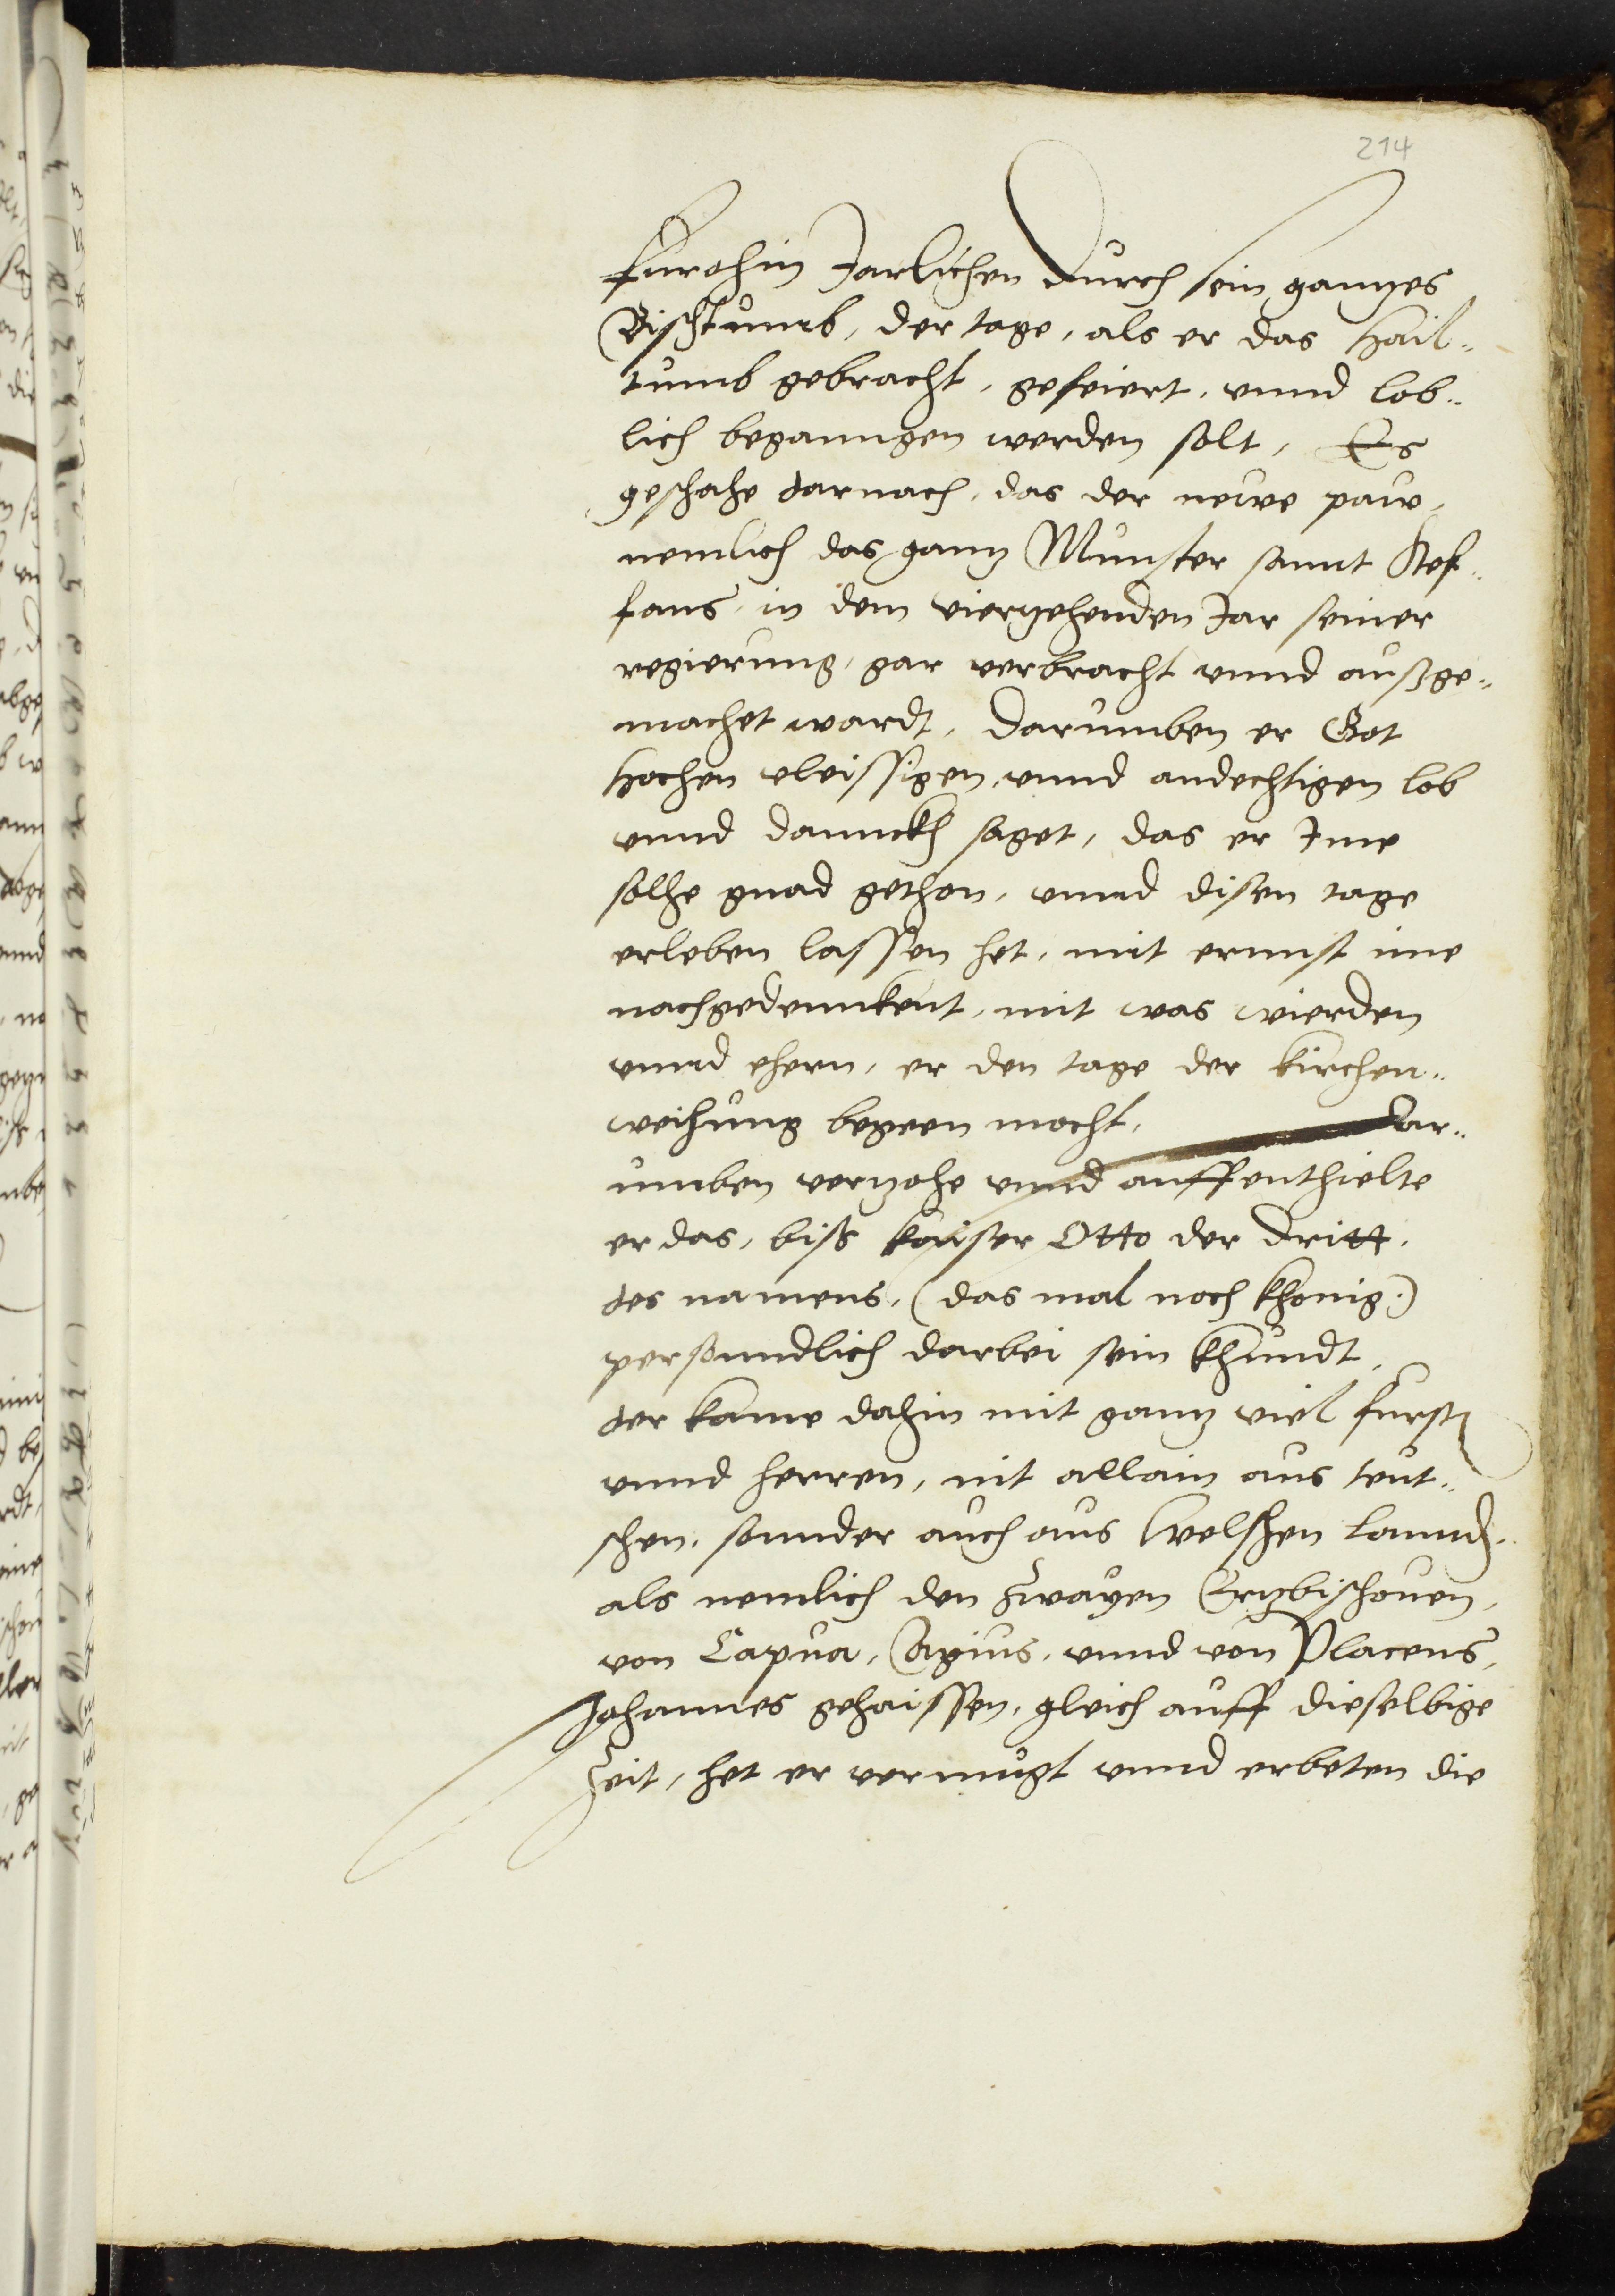 214
furohin Jarlichen durch sein gantzes
Bischtumb, der tage, als er das hail-
tumb gebracht, gefeiert, vnnd lob-
lich beganngen werden solt, Es
geschahe darnach, das der newe paw,
nemlich das gantz Munster sannt Stef-
fans, in dem viertzehenden Jar seiner
regierung, gar verbracht vnnd außge-
machet wardt, darumben er Got
hochen vleissigen, vnnd andechtigen lob
vnnd dannckh saget, das er Ime
solhe gnad gethon, vnnd disen tage
erleben lassen het, mit ernnst ime
nachgedennkent, mit was wierden
vnnd ehern, er den tage der kirchen-
weihung begeen mocht, Dar-
umben vertzohe vnnd auffenthielte
er das, biss kaiser Otto der dritt,
des namens, (das mal noch khonig)
personndlich darbei sein khundt,
der kame dahin mit gantz viel furstn
vnnd herren, nit allain aus teut-
schen, sonnder auch aus welschen lannden,
als nemlich den zwayen Ertzbischouen,
von Capua, Agius, vnnd von Placens,
Johannes gehaissen, gleich auff dieselbige
Zeit, het er vermugt vnnd erbeten die